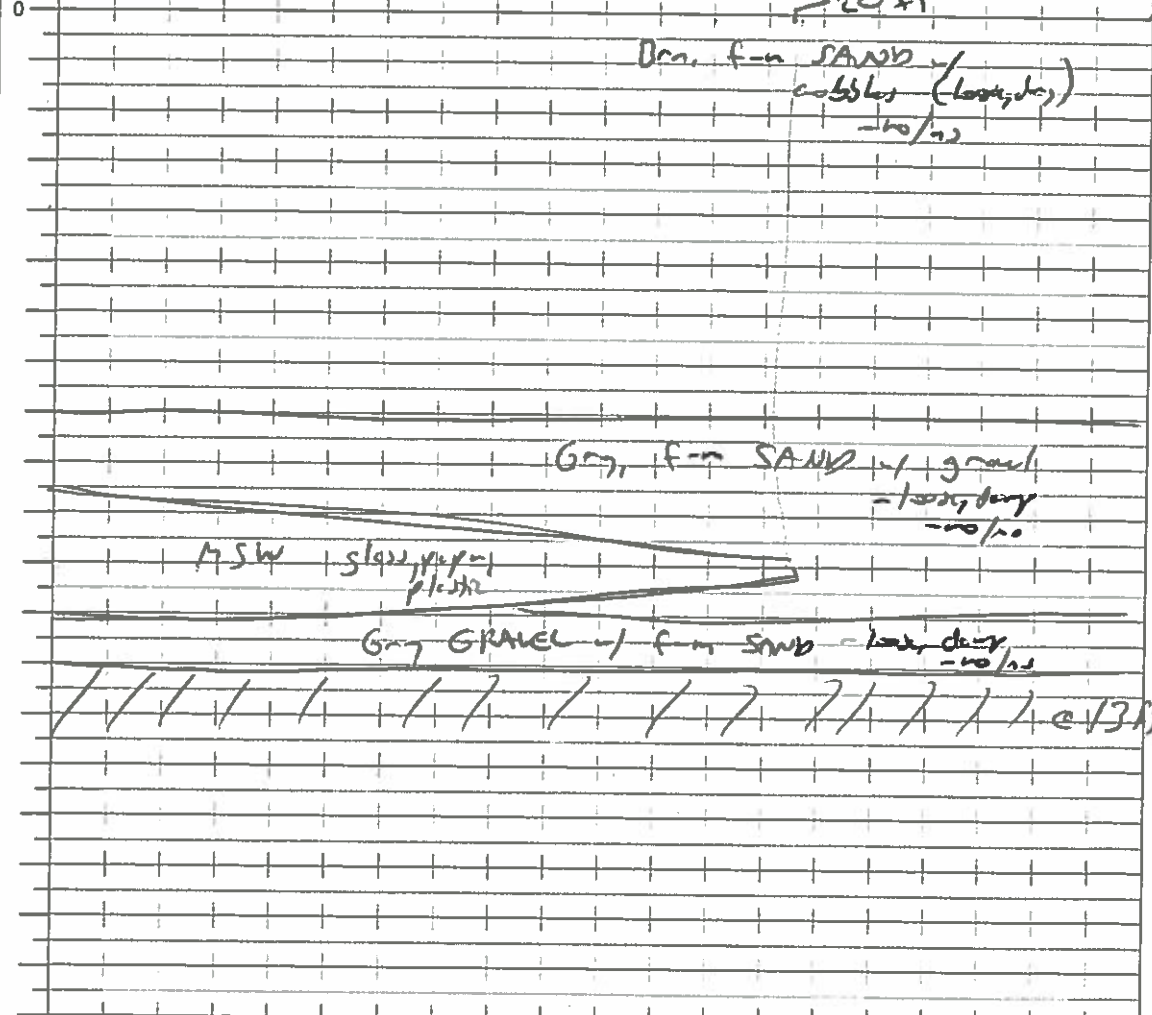 0
Brn, f-m SAND w/
cobbles (loose, dry)
-no/ns
Gry, f-m SAND w/ gravel
-loose, damp
-no/no
MSW glass, paper,
plastic
Gry GRAVEL w/ f-m SAND - loose, damp
-no/ns
@ 13